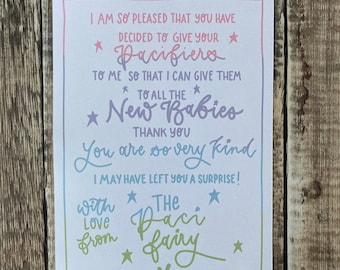 I AM SO PLEASED THAT YOU HAVE
DECIDED TO GIVE YOUR
Pacifiers
TO ME SO THAT I CAN GIVE THEM
TO ALL THE
New Babies
THANK YOU
You are so very kind
I MAY HAVE LEFT YOU A SURPRISE!
with love from
THE
Paci
fairy